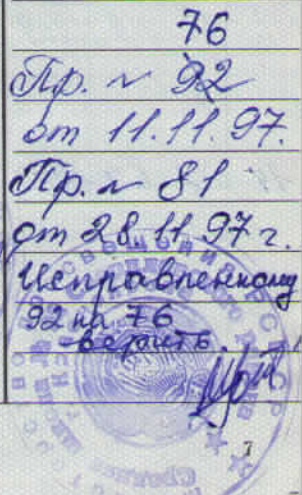 76
Пр. № 92
от 11.11.97.
Пр. № 81
от 28.11.97 г.
Исправленному
92 на 76
-верить.